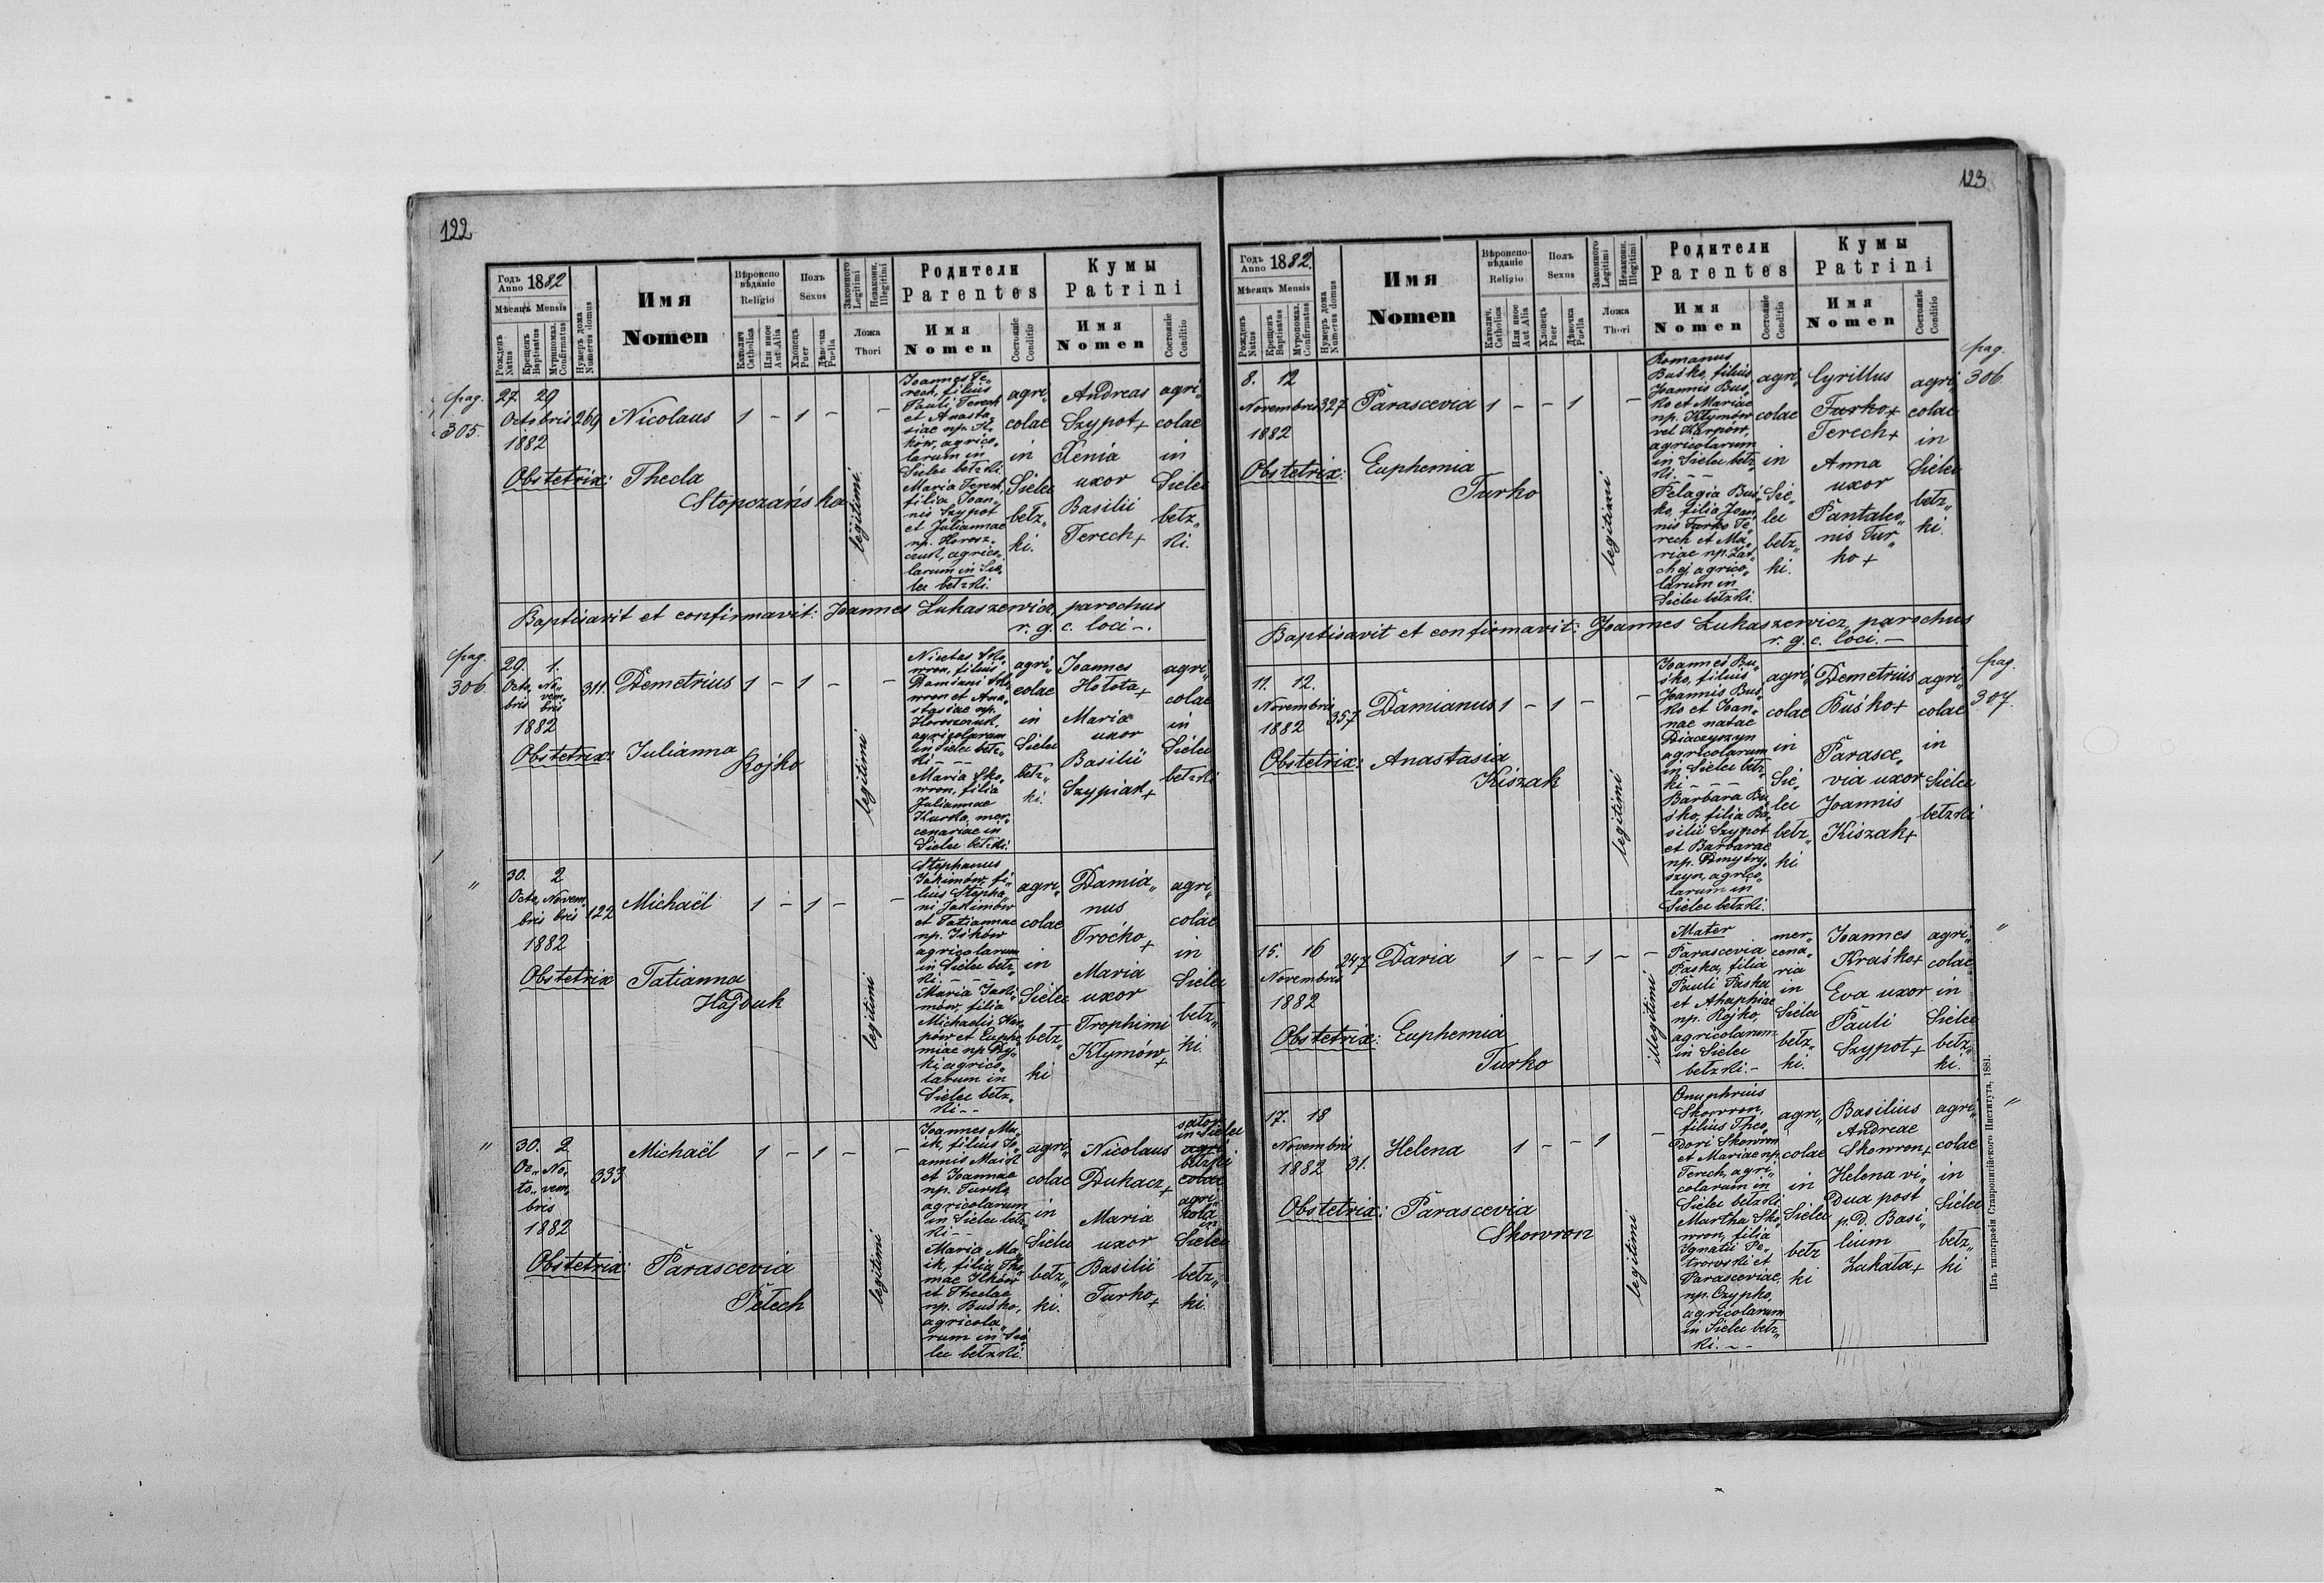 122
Годъ Anno 1882
Мѣсяцъ Mensis
Рожденъ Natus
Крещенъ Baptisatus
Муропомаз. Confirmatus
Нумеръ дома Numerus domus
Имя
Nomen
Вѣроиспо
вѣданіе
Religio
Католич. Catholica
Или иное Aut Alia
Полъ
Sexus
Хлопецъ Puer
Дѣвочка Puella
Законного Legitimi
Незаконн. Illegitimi
Ложа
Thori
Родители
Parentes
Имя
Nomen
Состояніе Conditio
Кумы
Patrini
Имя
Nomen
Состояніе Conditio
pag.
305.
27 29
Octobris 269
1882
Nicolaus
1 - 1 - -
Obstetrix: Thecla
Stopczańska
legitimi
Joannes Te„
rech, filius
Pauli Terech
et Anasta„
siae np. Il„
ków, agrico„
larum in
Sielec bełzki.
Maria Terech,
filia Joan„
nis Szypot
et Juliannae
np. Horosz„
czuk, agrico„
larum in Sie„
lec bełzki.
agri„
colae
in
Sielec
bełz„
ki.
Andreas
Szypot+
Xenia
uxor
Basilii
Terech+
agri„
colae
in
Sielec
bełz„
ki.
Baptisavit et confirmavit: Joannes Łukaszewicz, parochus
r. g. c. loci -.
pag.
306.
29. 1.
Octo„ No„
bris vem„
bris
1882
311.
Demetrius
1 - 1 - -
Obstetrix: Julianna
Rojko
legitimi
Nicetas Sko„
wron, filius
Damiani Sko„
wron et Ana„
stasiae np.
Horoszczuk,
agricolarum
in Sielec bełz„
ki - - -
Maria Sko„
wron, filia
Juliannae
Kurko, mer„
cenariae in
Sielec bełzki.
agri„
colae
in
Sielec
bełz„
ki.
Joannes
Hołota+
Maria
uxor
Basilii
Szypiak+
agri„
colae
in
Sielec
bełzki
„
30. 2
Octo„ Novem„
bris bris 122
1882
Michaël
1 - 1 - -
Obstetrix Tatianna
Hajduk
legitimi
Stephanus
Jakimów, fi„
lius Stepha„
ni Jakimów
et Tatiannae
np. Iśków
agricolarum
in Sielec bełz„
ki. - - -
Maria Jaki„
mów, filia
Michaelis Kar„
pów et Euphe„
miae np. Dy„
ki, agrico„
larum in
Sielec bełz„
ki - -
agri„
colae
in
Sielec
bełz„
ki
Damia„
nus
Troćko+
Maria
uxor
Trophimi
Kłymów+
agri„
colae
in
Sielec
bełz„
ki.
„
30. 2
Oc„ No„
to„ vem„
bris
1882
333
Michaël
1 - 1 - -
Obstetrix: Parascevia
Pełech
legitimi
Joannes Ma„
ik, filius Jo„
annis Maik
et Joannae
np. Turko
agricolarum
in Sielec bełz„
ki - -
Maria Ma„
ik, filia Tho„
mae Ilków
et Theclae
np. Buśko,
agricola„
rum in Sie„
lec bełzki.
agri„
colae
in
Sielec
bełz„
ki.
Nicolaus
Dukacz+
Maria
uxor
Basilii
Turko+
sator
in Sielec
agri„
bełzki
colae
agri„
cola
in
Sielec
bełz„
ki.
123
Годъ Anno 1882.
Мѣсяцъ Mensis
Рожденъ Natus
Крещенъ Baptisatus
Муропомаз. Confirmatus
Нумеръ дома Numerus domus
Имя
Nomen
Вѣроиспо-
вѣданіе
Religio
Католич. Catholica
Или иное Aut Alia
Полъ
Sexus
Хлопецъ Puer
Дѣвочка Puella
Законного Legitimi
Незаконн. Illegitimi
Ложа
Thori
Родители
Parentes
Имя
Nomen
Состояніе Conditio
Кумы
Patrini
Имя
Nomen
Состояніе Conditio
pag.
306.
8. 12
Novembris 327
1882
Parascevia
1 - - 1 -
Obstetrix: Euphemia
Turko
legitimi
Romanus
Buśko, filius
Joannis Buś„
ko et Mariae
np. Kłymów
vel Karpów,
agricolarum
in Sielec bełz„
ki. - - -
Pelagia Buś„
ko, filia Joan„
nis Turko Te„
rech et Ma„
riae np.
agrico„
larum in
Sielec bełzki.
agri„
colae
in
Sie„
lec
bełz„
ki.
Cyrillus
Turko+
Terech+
Anna
uxor
Pantaleo„
nis Tur„
ko+
agri„
colae
in
Sielec
bełz„
ki.
Baptisavit et confirmavit: Joannes Łukaszewicz, parochus
r. g. c. loci. -
pag.
307.
11. 12.
Novembris
1882 357
Damianus
1 - 1 - -
Obstetrix: Anastasia
Kiszak
legitimi
Joannes Bu„
śko, filius
Joannis Buś„
ko et Joan„
nae natae
Diaczyszyn
agricolarum
in Sielec bełz„
ki - - -
Barbara Bu„
śko, filia Ba„
silii Szypot
et Barbarae
np. Dmytry„
szyn, agrico„
larum in
Sielec bełzki.
agri„
colae
in
Sie„
lec
bełz„
ki.
Demetrius
Buśko+
Parasce„
via uxor
Joannis
Kiszak+
agri„
colae
in
Sielec
bełzki
„
15. 16
Novembris
1882
247
Daria
1 - - 1 - -
Obstetrix: Euphemia
Turko
illegitimi
Mater
Parascevia
Paska, filia
Pauli Paska
et Ahaphiae
np. Rojko,
agricolarum
in Sielec
bełzki. -
mer„
cena„
ria
in
Sielec
bełz„
ki.
Joannes
Kraśko+
Eva uxor
Pauli
Szypot+
agri„
colae
in
Sielec
bełz„
ki.
„
17. 18
Novembris
1882 31.
Helena
1 - - 1 -
Obstetrix: Parascevia
Skowron
legitimi
Onuphrius
Skowron,
filius Theo„
dori Skowron
et Mariae np.
Terech, agri„
colarum in
Sielec bełzki
Martha Sko„
wron, filia
Ignatii Pe„
trowski et
Parasceviae
np. Czypko,
agricolarum
in Sielec bełz„
ki. - -
agri„
colae
in
Sielec
bełz
ki
Basilius
Andreae
Skowron+
Helena vi„
dua post
p. d. Basi„
lium
Zakała+
agri„
colae
in
Sielec
bełz„
ki
Изъ типографіи Ставропигійского Института, 1881.